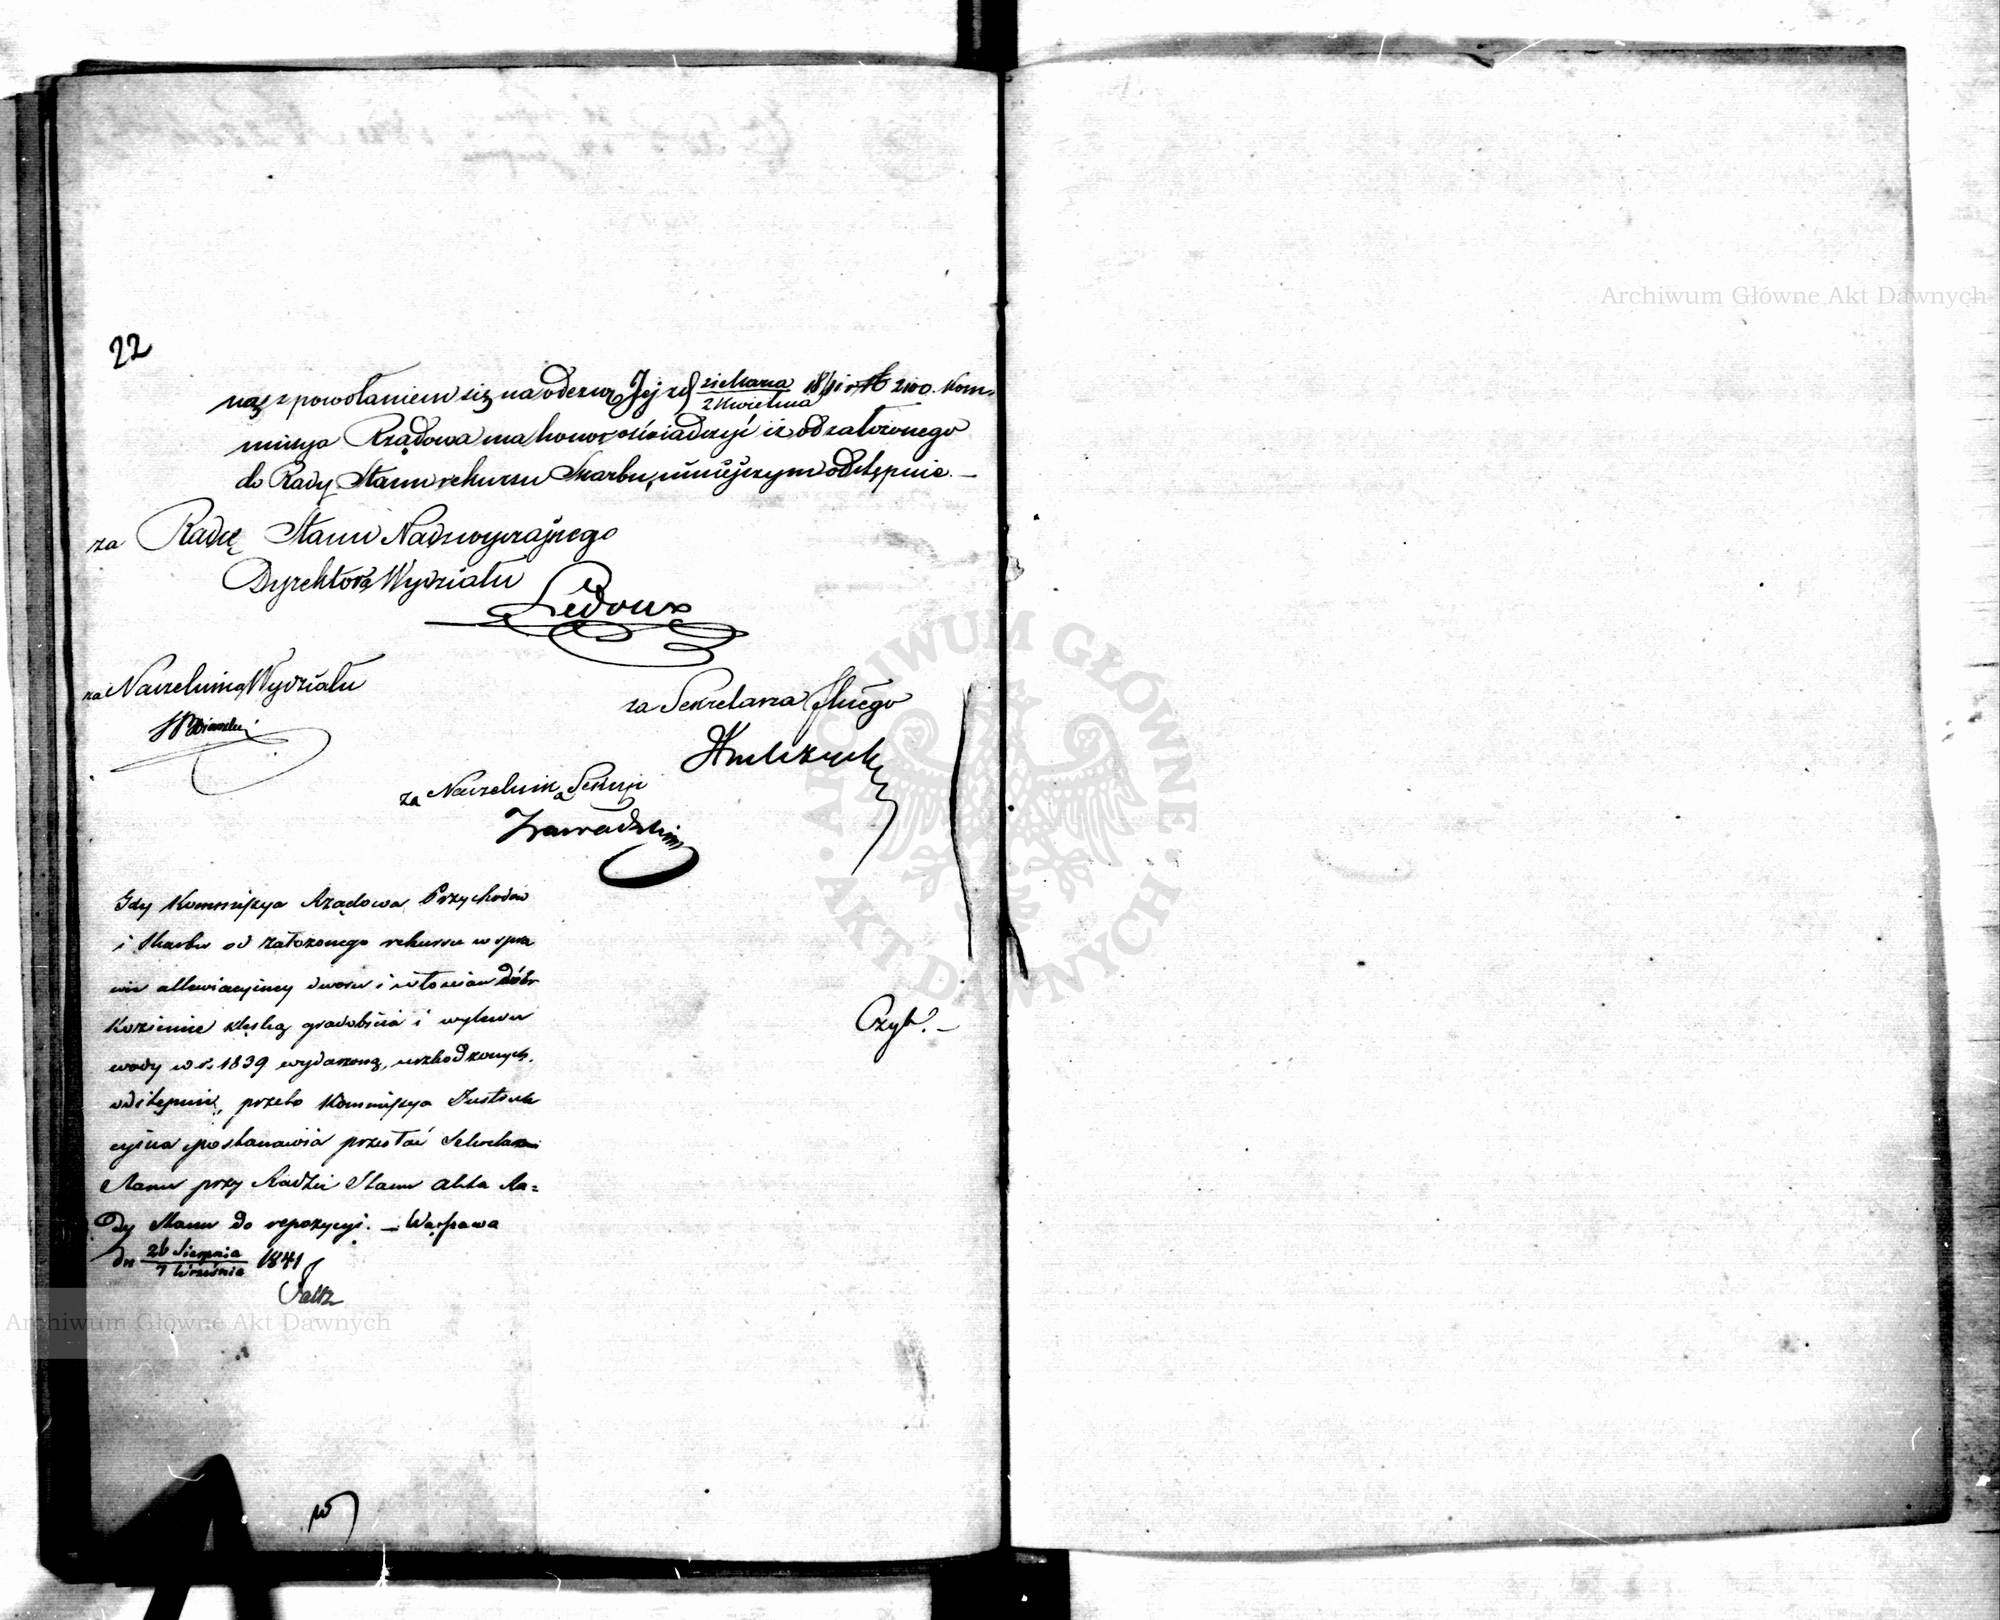 22
ną, z powołaniem się na odezwę Jej z d 21 Marca / 2 Kwietnia 1841 r. № 2100. Kom-
missya Rządowa ma honor oświadczyć iż od założonego
do Rady Stanu rekursu Skarbu, niniejszym odstępuie. —
za Radcę Stanu Nadzwyczajnego
Dyrektora Wydziału
Ledoux
za Naczelnika Wydziału
za Sekretarza Jlnego
za Naczelnika Sekcyi
Zawadzki
Gdy Kommissya Rządowa Przychodów
i Skarbu od założonego rekursu w spra
wie allewiacyjney dworu i włościan dóbr
Kozienice klęską gradobicia i wylewu
wody w r. 1839 wydarzoną, uszkodzonych,
odstępuie, przeto Kommissya Instruk
cyjna postanawia przesłać Sekretarzowi
Stanu przy Radzie Stanu akta Ra=
dy Stanu do repozycyi. — Warszawa
dn 26 Sierpnia / 7 Września 1841
Faltz
Czyt. —
Archiwum Główne Akt Dawnych
Archiwum Główne Akt Dawnych
ARCHIWUM GŁÓWNE · AKT DAWNYCH ·